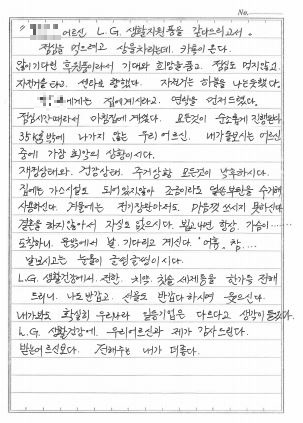 No.
" 어르신 L.G. 생활지원품을 갖다드리고서 "
점심을 먹으려고 상을 차리는데. 카톡이 온다.
많이 기다린 후원품이라서 기대와 희망을 품고. 점심도 먹지않고
자전거를 타고. 센타로 향했다. 자전거는 하늘을 나는듯했다.
에게는 집에 계시라고. 연락을 먼저드렸다.
점심시간 때라서 마침 집에 계셨다. 모든것이 순조롭게 진행된다.
35kg 밖에 나가지 않는 우리 어르신. 내가 돌보시는 어르신
중에 가장 최악의 상황이시다.
재정상태와. 건강상태. 주거상황 모든것이 낙후하시다.
집에는 가스시설도 되어있지않아 조금이라도 일손부탄을 수거해
사용하신다. 겨울에는 전기장판아서도. 마음껏 쓰시지 못하신다
결혼을 하지않아서 자식도 없으시다. 뵙고나면 항상. 가슴이......
도착하니. 문밖에서 날. 기다리고 계신다. "어휴. 참....
날 보시고는 눈물이 글썽글썽이시다.
L.G. 생활건강에서. 전한. 치약. 칫솔 세제등을 한가득 전해
드리니. 나도 반갑고. 선물도 반갑다 하시며 웃으신다.
내가봐도 확실히 우리나라 일등기업은 다르다고 생각이 들었다.
L.G. 생활건강에. 우리어르신과 제가 감사드린다.
받는어르신보다. 전해주는 내가 더좋다.